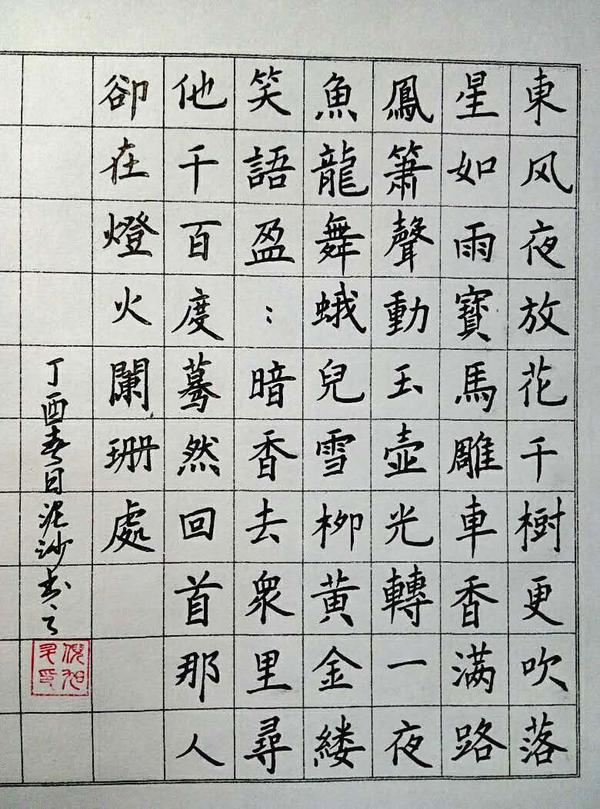 東风夜放花千樹更吹落
星如雨寳馬雕車香满路
鳳簫聲動玉壺光轉一夜
魚龍舞蛾兒雪柳黄金縷
笑語盈:暗香去衆里尋
他千百度驀然回首那人
卻在燈火闌珊處
丁酉春日泥沙書之